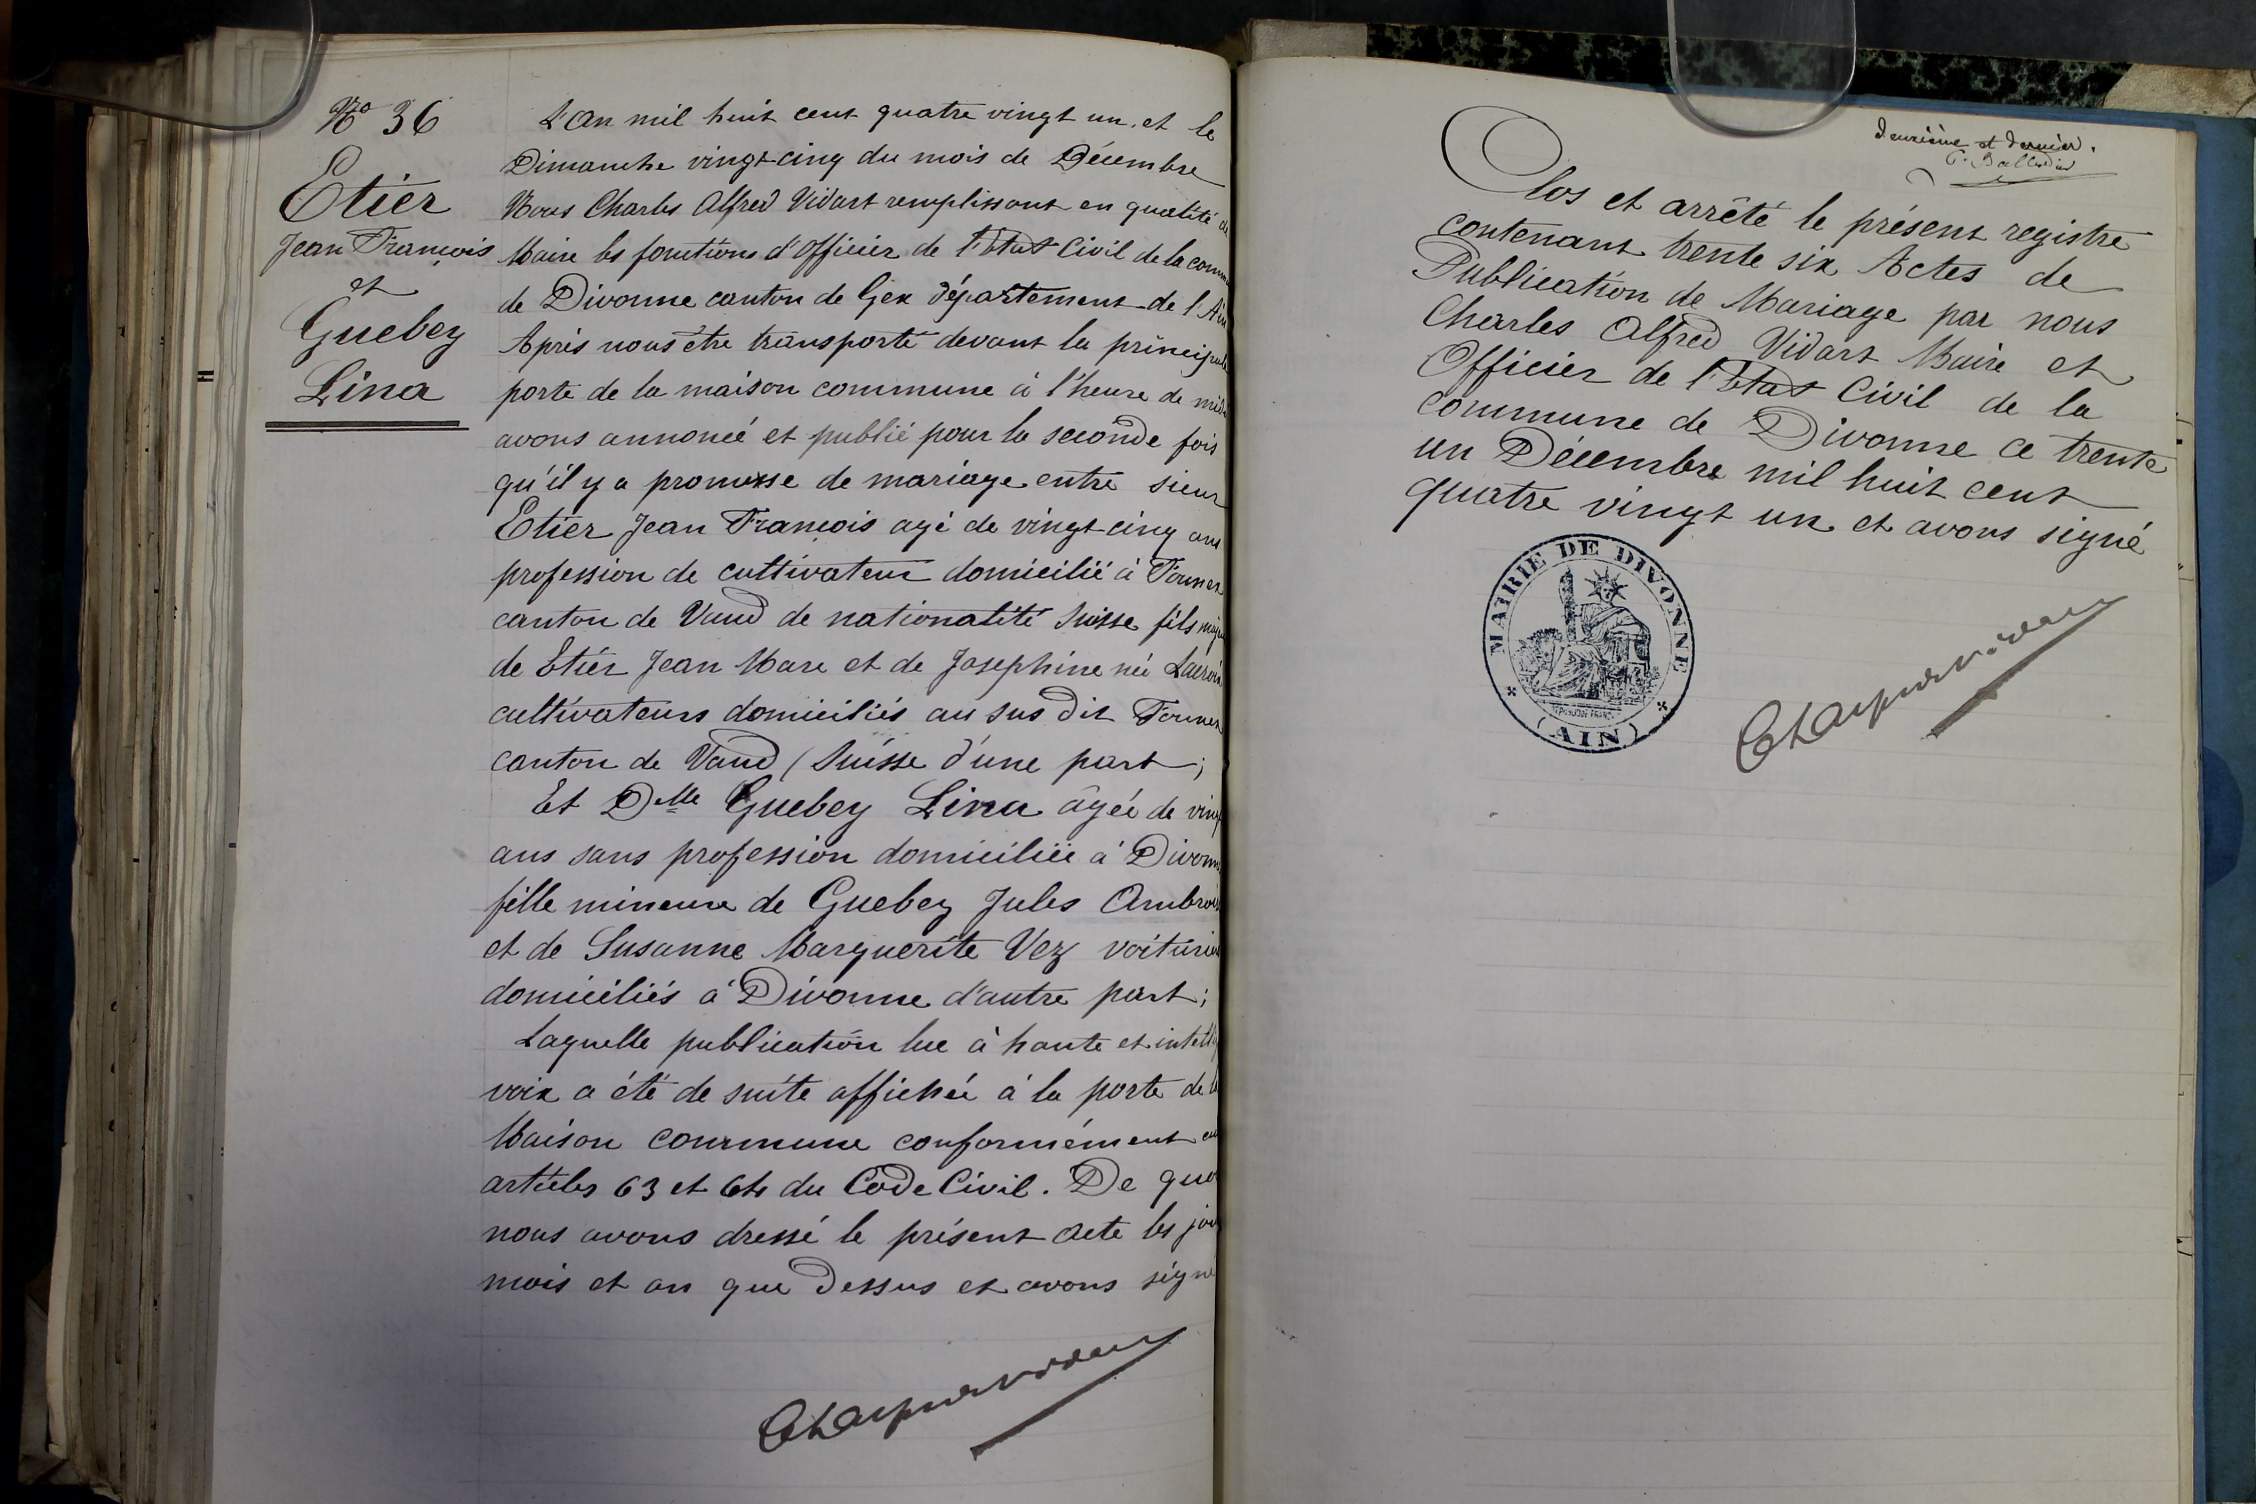 No 36
Etier
Jean François
et
Guebey
Lina
L'An mil huit cent quatre vingt un. et le
Dimanche vingt-cinq du mois de Décembre
Nous Charles Alfred Vidart remplissant en qualité de
Maire les fonctions d'Officier de l'Etat Civil de la comm
de Divonne canton de Gex département de l'Ain
Après nous être transporté devant la principale
porte de la maison commune à l'heure de midi
avons annoncé et publié pour la seconde fois
qu'il y a promesse de mariage entre sieur
Etier Jean François agé de vingt-cinq ans
profession de cultivateur domicilié à
canton de Vaud de nationalité Suisse fils maj
de Etier Jean Marc et de Josephine née Lacroix
cultivateurs domiciliés au sus dit
canton de Vaud (Suisse d'une part;
Et Delle Guebey Lina âgée de ving
ans sans profession domiciliée à Divonn
fille mineure de Guebey Jules Ambrois
et de Susanne Marguerite Vez voiturier
domiciliés à Divonne d'autre part;
Laquelle publication lue à haute et intelli
voix a été de suite affichée à la porte de la
Maison commune conformément au
articles 63 et 64 du Code Civil. De quoi
nous avons dressé le présent acte les jou
mois et an que dessus et avons signé
deuxième et dernier.
Clos et arrêté le présent registre
contenant trente six Actes de
Publication de Mariage par nous
Charles Alfred Vidart Maire et
Officier de l'Etat Civil de la
commune de Divonne ce trente
un Décembre mil huit cent
quatre vingt un et avons signé
MAIRIE DE DIVONNE
(AIN)